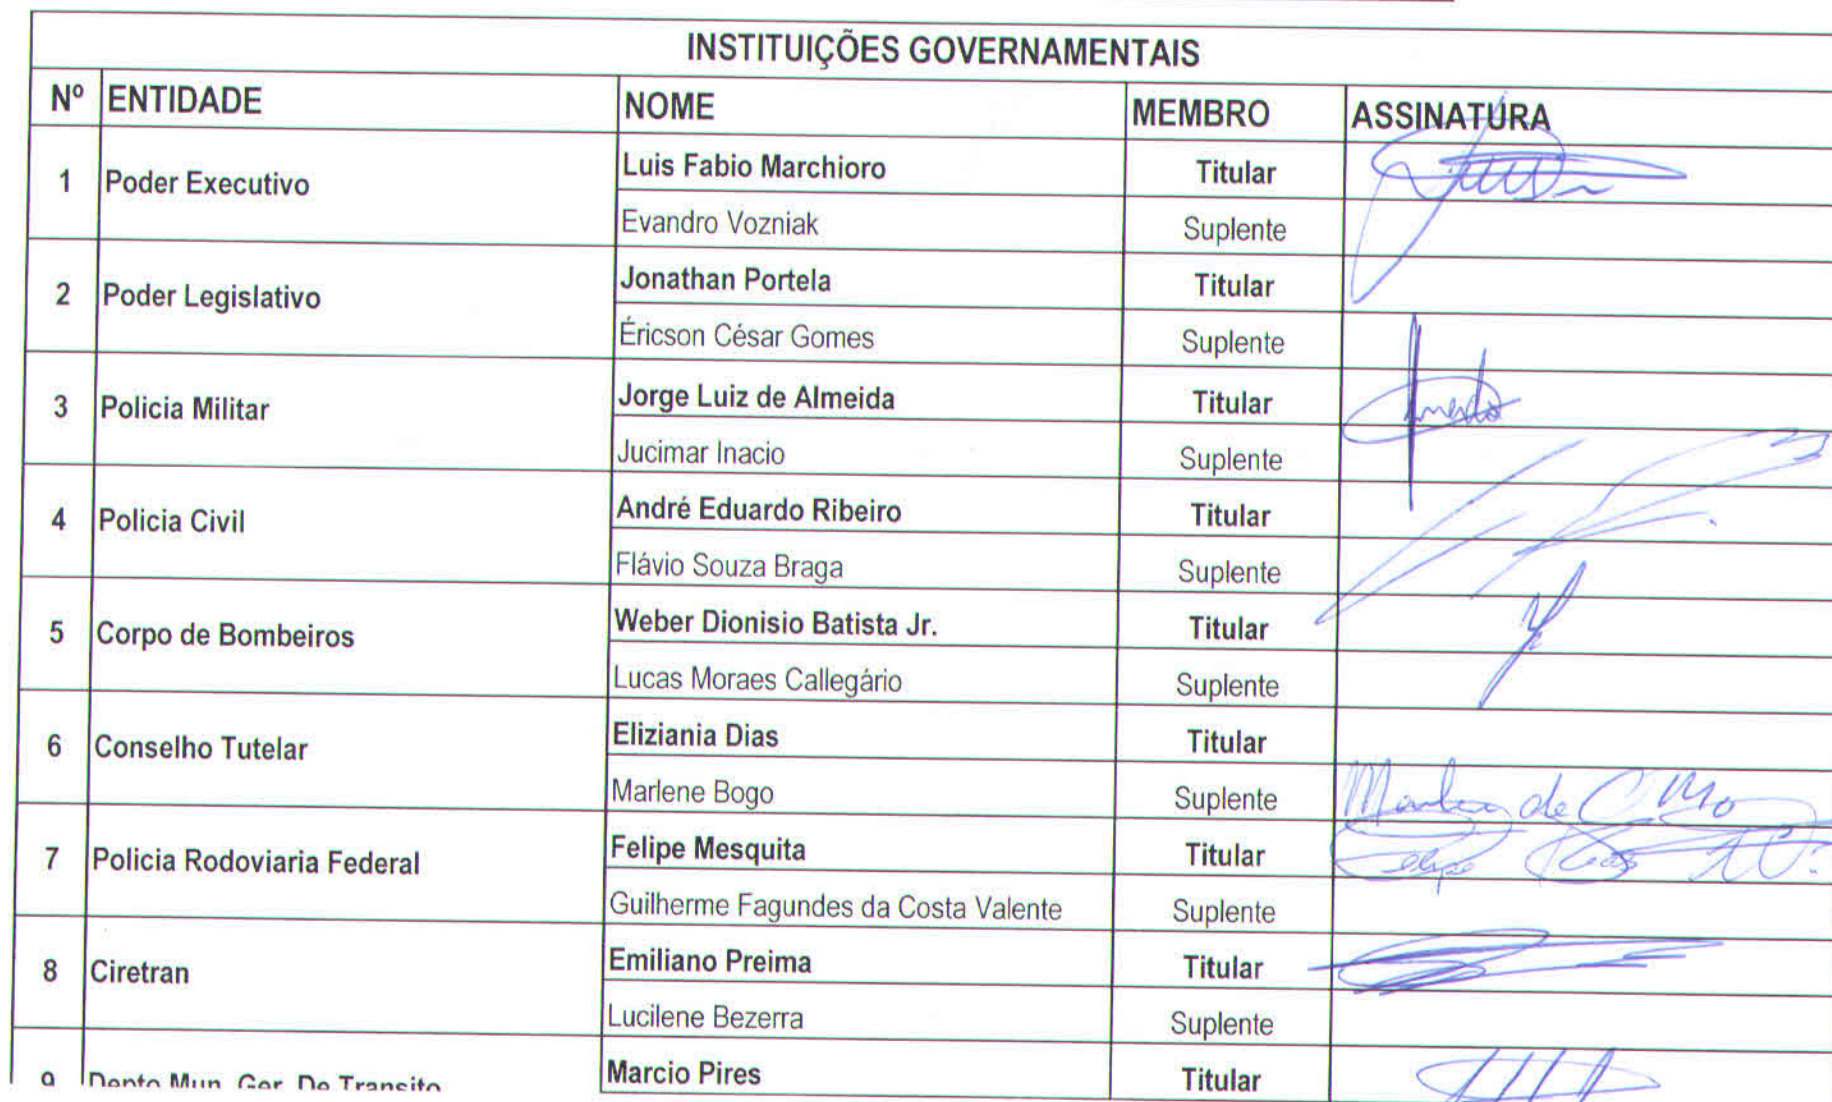 INSTITUIÇÕES GOVERNAMENTAIS
Nº ENTIDADE NOME MEMBRO ASSINATURA
1 Poder Executivo Luis Fabio Marchioro Titular
Evandro Vozniak Suplente
2 Poder Legislativo Jonathan Portela Titular
Éricson César Gomes Suplente
3 Policia Militar Jorge Luiz de Almeida Titular
Jucimar Inacio Suplente
4 Policia Civil André Eduardo Ribeiro Titular
Flávio Souza Braga Suplente
5 Corpo de Bombeiros Weber Dionisio Batista Jr. Titular
Lucas Moraes Callegário Suplente
6 Conselho Tutelar Eliziania Dias Titular
Marlene Bogo Suplente de
7 Policia Rodoviaria Federal Felipe Mesquita Titular Felipe
Guilherme Fagundes da Costa Valente Suplente
8 Ciretran Emiliano Preima Titular
Lucilene Bezerra Suplente
9 Depto Mun. Ger. De Transito Marcio Pires Titular